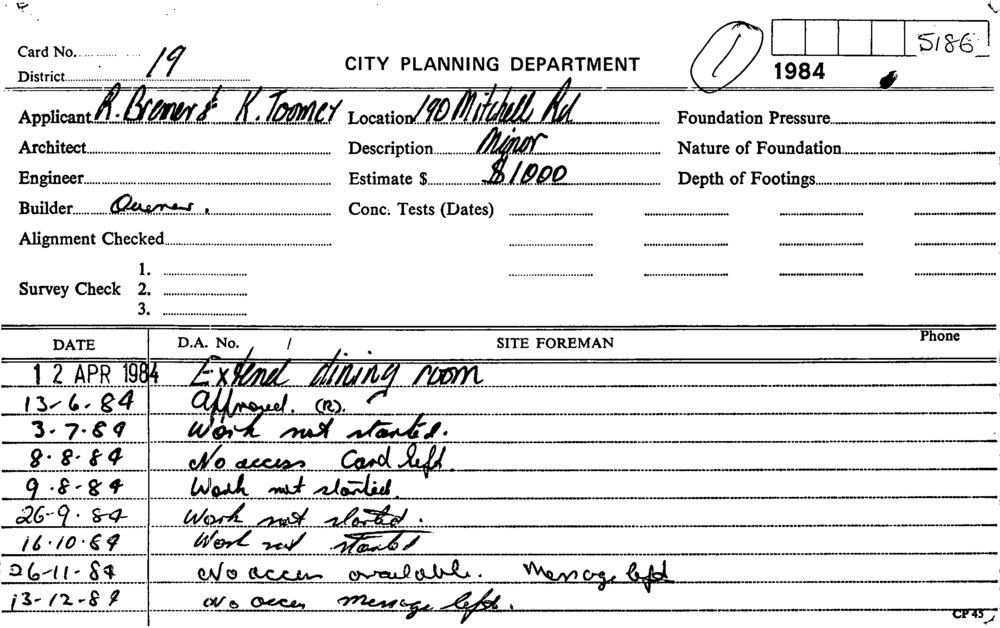 Card No. 5186
District 19 CITY PLANNING DEPARTMENT 1 1984
Applicant R. Bremer & K. Toomey Location 190 Mitchell Rd Foundation Pressure
Architect Description Minor Nature of Foundation
Engineer Estimate $ $1000 Depth of Footings
Builder Owner. Conc. Tests (Dates)
Alignment Checked
1.
Survey Check 2.
3.
DATE D.A. No. / SITE FOREMAN Phone
12 APR 1984 Extend dining room
13-6.84 Approved. (R).
3.7.84 Work not started.
8.8.84 No access Card left.
9.8-84 Work not started.
26-9.84 Work not started.
16.10.84 Work not started
26-11-84 No access available. Message left
13-12-84 No access message left.
CP 45